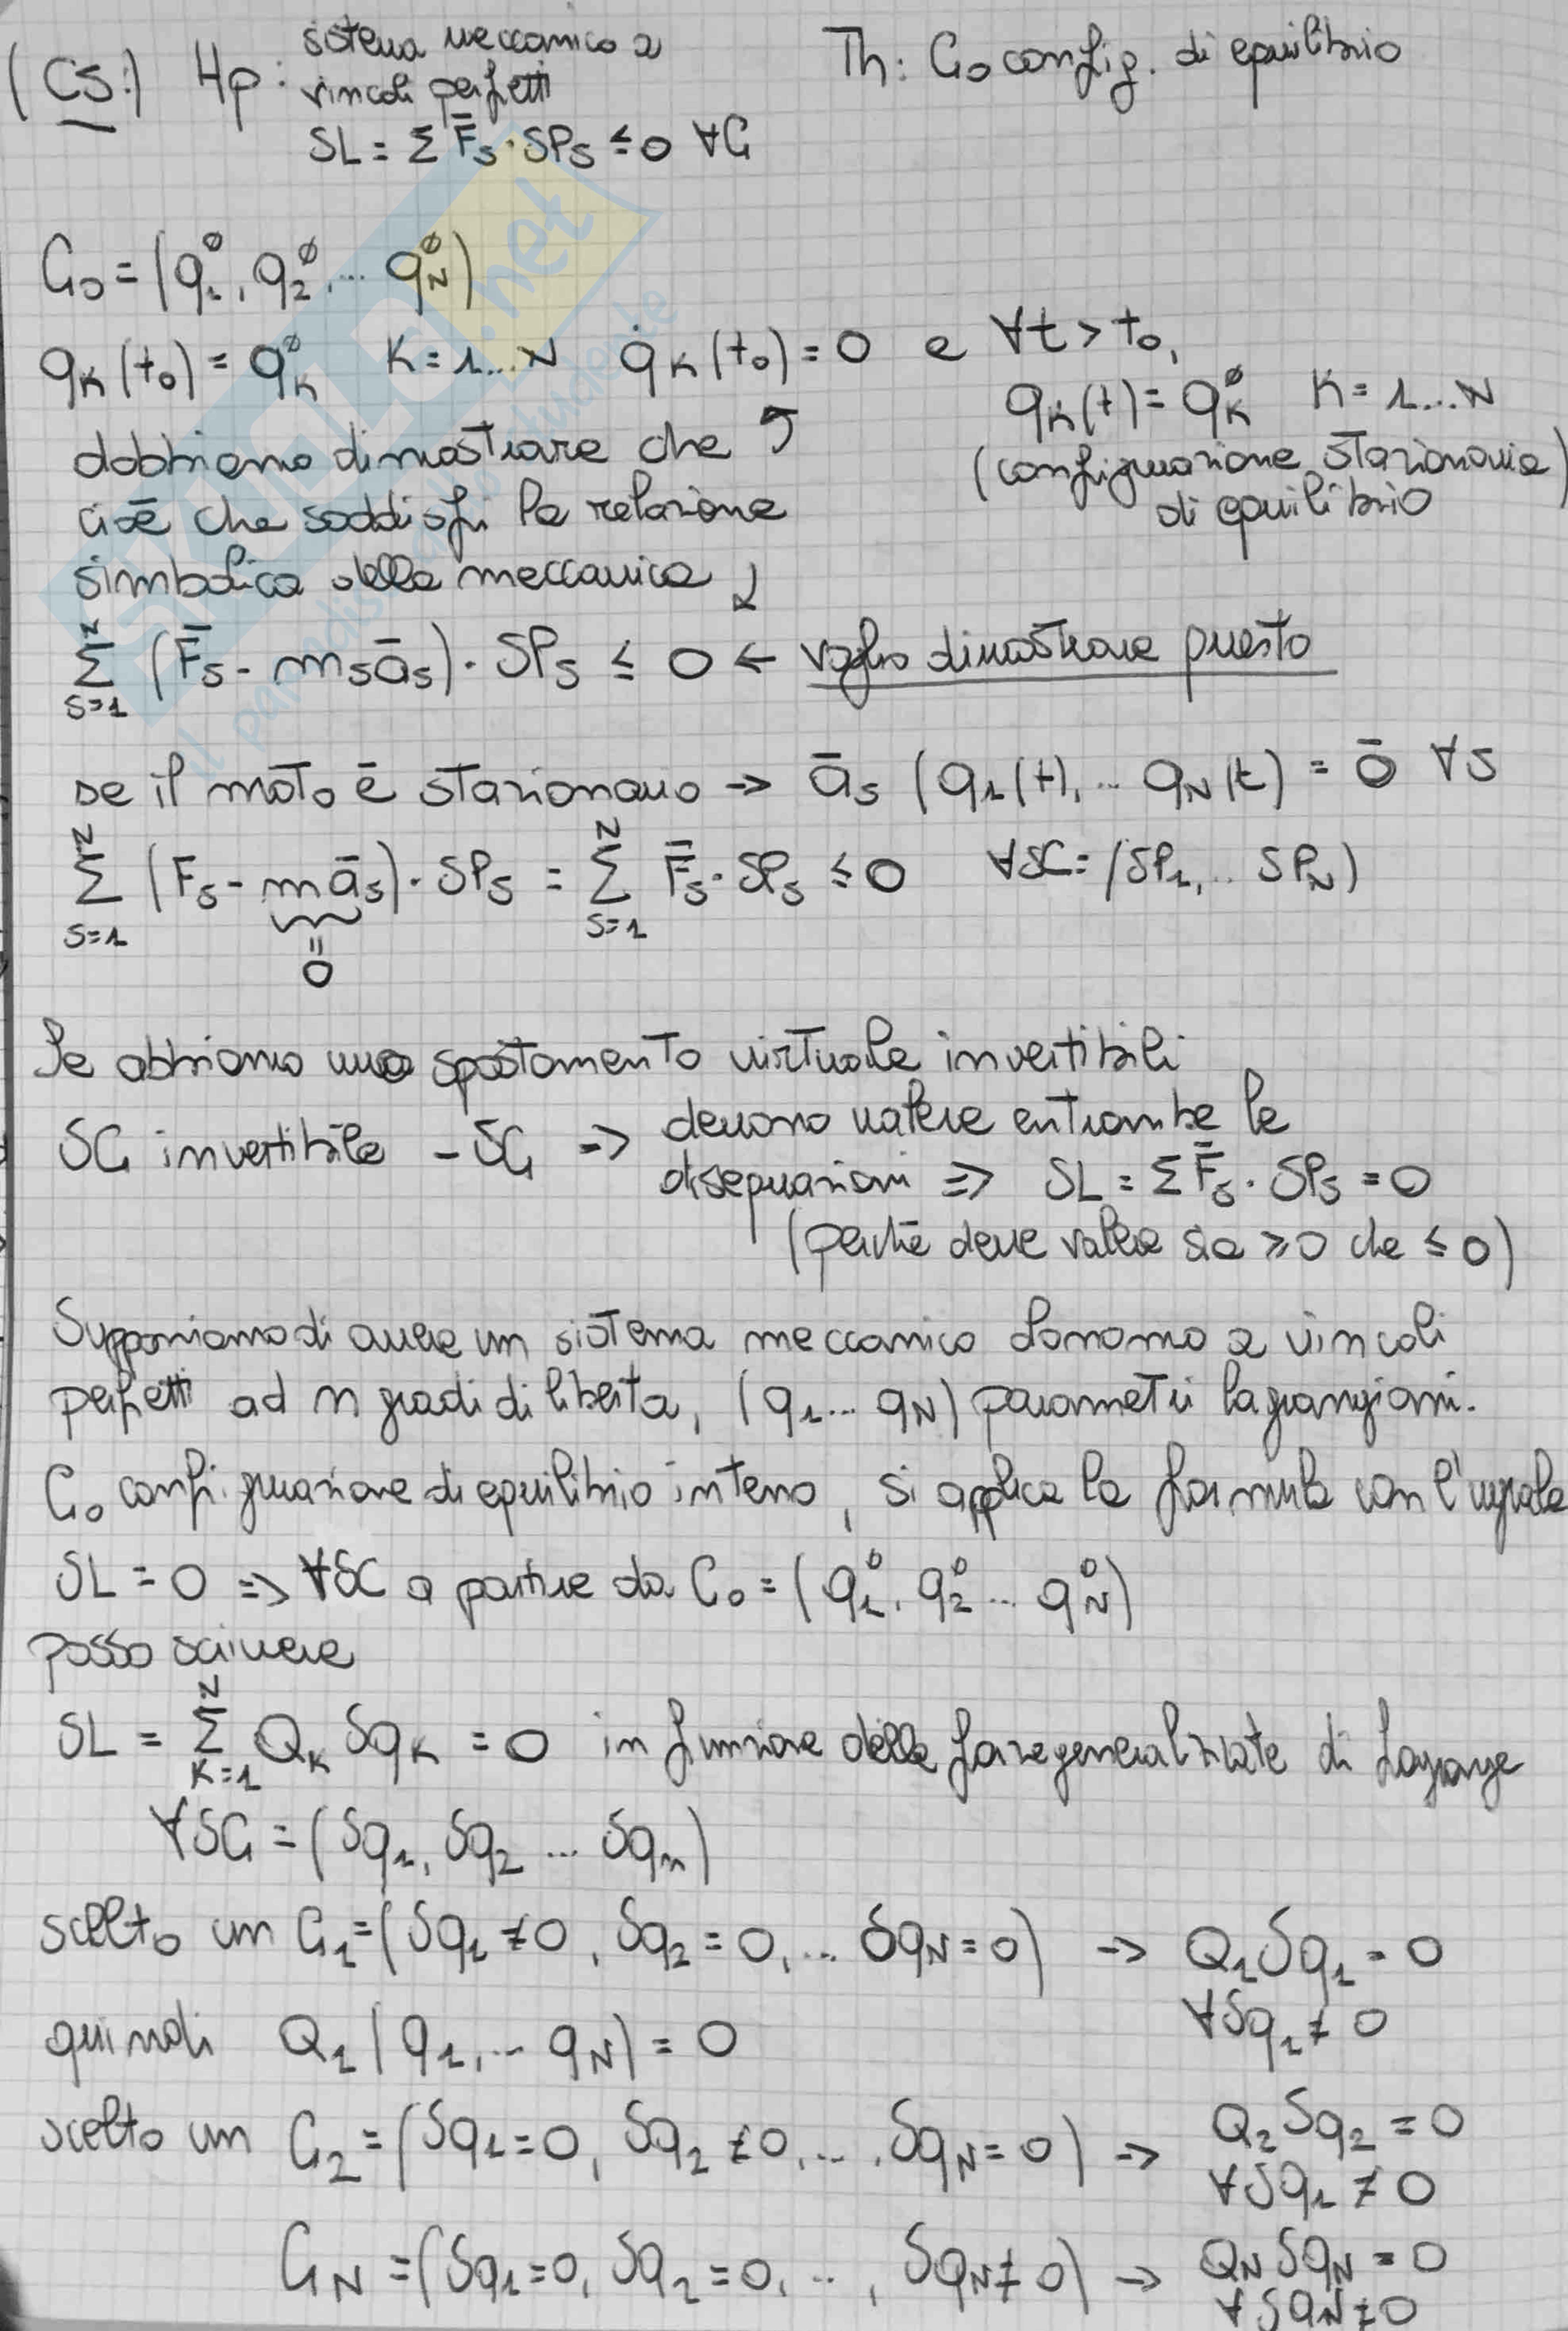 (CS:) Hp: sistema meccanico a
vincoli perfetti
δL = Σ F̄s · δPs ≤ 0 ∀C
Th: C₀ config. di equilibrio
C₀ = (q₁⁰, q₂⁰, ... q_N⁰)
q_K(t₀) = q_K⁰ K = 1...N q̇_K(t₀) = 0 e ∀t > t₀,
q_K(t) = q_K⁰ K = 1...N
(configurazione stazionaria
di equilibrio
dobbiamo dimostrare che
cioè che soddisfi la relazione
simbolica della meccanica
Σ_{s=1}^{N} (F̄s - ms ās) · δPs ≤ 0 ← voglio dimostrare questo
se il moto è stazionario → ās (q₁(t), ... q_N(t) = 0̄ ∀s
Σ_{s=1}^{N} (Fs - m ās) · δPs = Σ_{s=1}^{N} F̄s · δPs ≤ 0 ∀δC = (δP₁, ... δP_N)
=
0
Se abbiamo uno spostamento virtuale invertibili
δC invertibile - δC ⇒ devono valere entrambe le
disequazioni ⇒ δL = Σ F̄s · δPs = 0
(perché deve valere sia ≥ 0 che ≤ 0)
Supponiamo di avere un sistema meccanico olonomo a vincoli
perfetti ad n gradi di libertà, (q₁ ... q_N) parametri lagrangiani.
C₀ configurazione di equilibrio interno, si applica la formula con l'uguale
δL = 0 ⇒ ∀δC a partire da C₀ = (q₁⁰, q₂⁰ ... q_N⁰)
posso scrivere
δL = Σ_{K=1}^{N} Q_K δq_K = 0 in funzione delle forze generalizzate di Lagrange
∀δC = (δq₁, δq₂ ... δqₙ)
scelto un C₁ = (δq₁ ≠ 0, δq₂ = 0, ... δq_N = 0) → Q₁δq₁ = 0
∀δq₁ ≠ 0
quindi Q₁(q₁, ... q_N) = 0
scelto un C₂ = (δq₁ = 0, δq₂ ≠ 0, ..., δq_N = 0) → Q₂δq₂ = 0
∀δq₁ ≠ 0
C_N = (δq₁ = 0, δq₂ = 0, ..., δq_N ≠ 0) → Q_N δq_N = 0
∀δq_N ≠ 0
SKUOLA.net